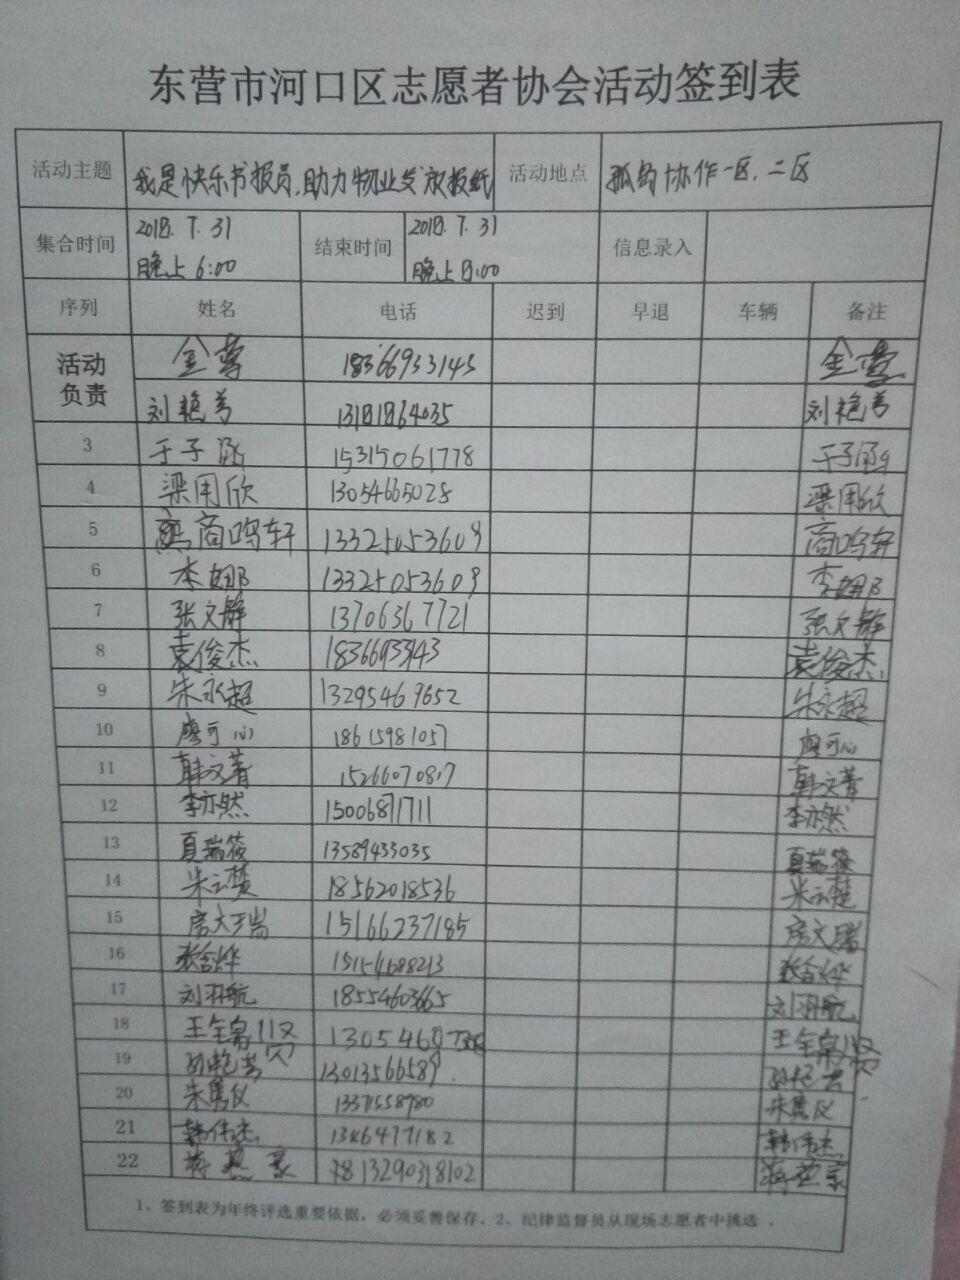 东营市河口区志愿者协会活动签到表
活动主题 我是快乐书报员,助力物业发放报纸 活动地点 孤岛协作一区,二区
集合时间 2018.7.31 晚上6:00 结束时间 2018.7.31 晚上8:00 信息录入
序列 姓名 电话 迟到 早退 车辆 备注
活动负责 金莺 18366933145 金莺
刘艳芳 13181864035 刘艳芳
3 于子涵 15315061778 于子涵
4 梁用欣 13054665028 梁用欣
5 商鸣轩 13325053609 商鸣轩
6 李娜 13325053609 李娜
7 张文静 13706367721 张文静
8 袁俊杰 18366933143 袁俊杰
9 朱永超 13295469652 朱永超
10 廖可心 18615981057 廖可心
11 韩文菁 15266070817 韩文菁
12 李亦然 15006871711 李亦然
13 夏瑞筱 13589433035 夏瑞筱
14 朱云楚 18562018536 朱云楚
15 房文瑞 15166237185 房文瑞
16 15154688213
17 刘羽航 18554603665 刘羽航
18
19 13013566589
20 朱隽仪 13371558980 朱隽仪
21 韩伟杰 韩伟杰
22 13290318102
1、签到表为年终评选重要依据,必须妥善保存、2、纪律监督员从现场志愿者中挑选.